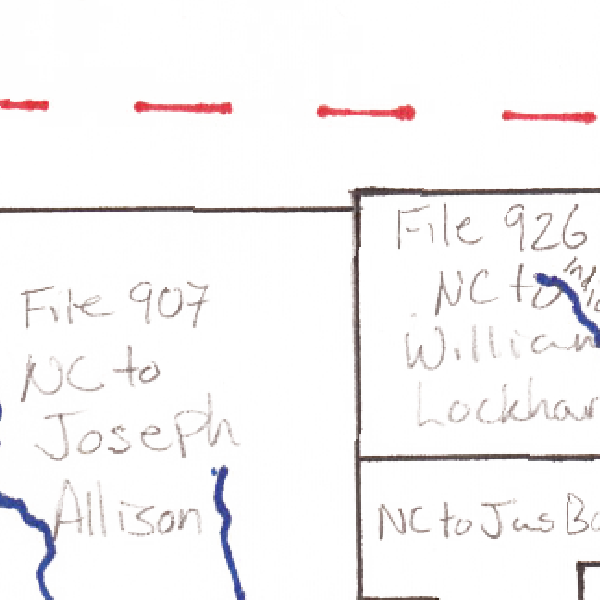 File 907
NC to
Joseph
Allison
File 926
NC to
William
Lockhar
NC to Jas